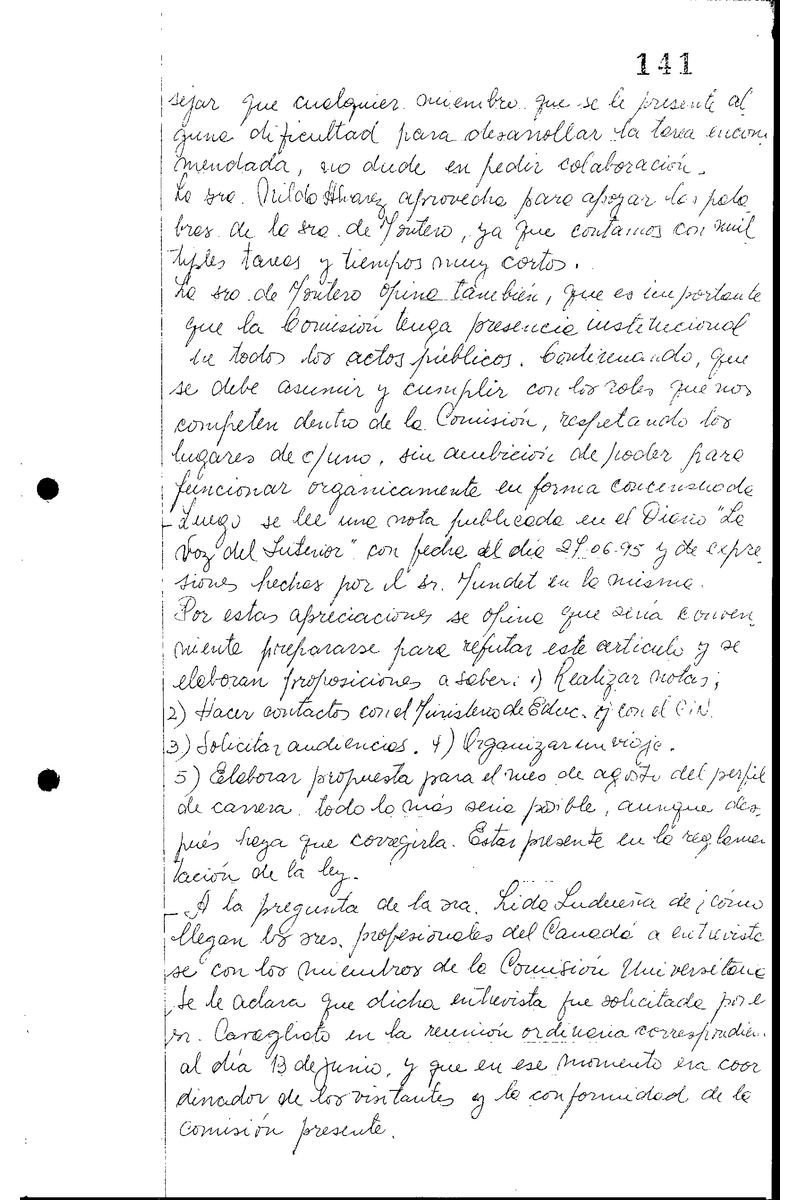 141
sejar que cualquier miembro que se le presente al
guna dificultad para desarrollar la tarea encom
mendada, no dude en pedir colaboración.
La sra. Nilda Alvarez aprovecha para apoyar las pala
bras de la sra. de Montero, ya que contamos con múl
tiples tareas y tiempos muy cortos.
La sra de Montero opina también, que es importante
que la Comisión tenga presencia institucional
en todos los actos públicos. Continuando, que
se debe asumir y cumplir con los roles que nos
competen dentro de la Comisión, respetando los
lugares de c/uno, sin ambición de poder para
funcionar orgánicamente en forma concensuada
- Luego se lee una nota publicada en el Diario "La
Voz del Interior" con fecha del día 27.06.95 y de expre
siones hechas por el sr. Mundet en la misma.
Por estas apreciaciones se opina que sería conven
niente prepararse para refutar este artículo y se
elaboran proposiciones a saber: 1) Realizar notas;
2) Hacer contactos con el Ministerio de Educ. y con el CIN.
3) Solicitar audiencias. 4) Organizar un viaje.
5) Elaborar propuesta para el mes de agosto del perfil
de carrera todo lo más seria posible, aunque des-
pués haya que corregirla. Estar presente en la reglamen
tación de la ley.
- A la pregunta de la sra. Lida Ludueña de ¿cómo
llegan los sres. profesionales del Canadá a entrevista
se con los miembros de la Comisión Universitaria
se le aclara que dicha entrevista fue solicitada por e
sr. Cavagliato en la reunión ordinaria correspondien.
al día 13 de junio, y que en ese momento era coor
dinador de los visitantes y la conformidad de la
comisión presente.